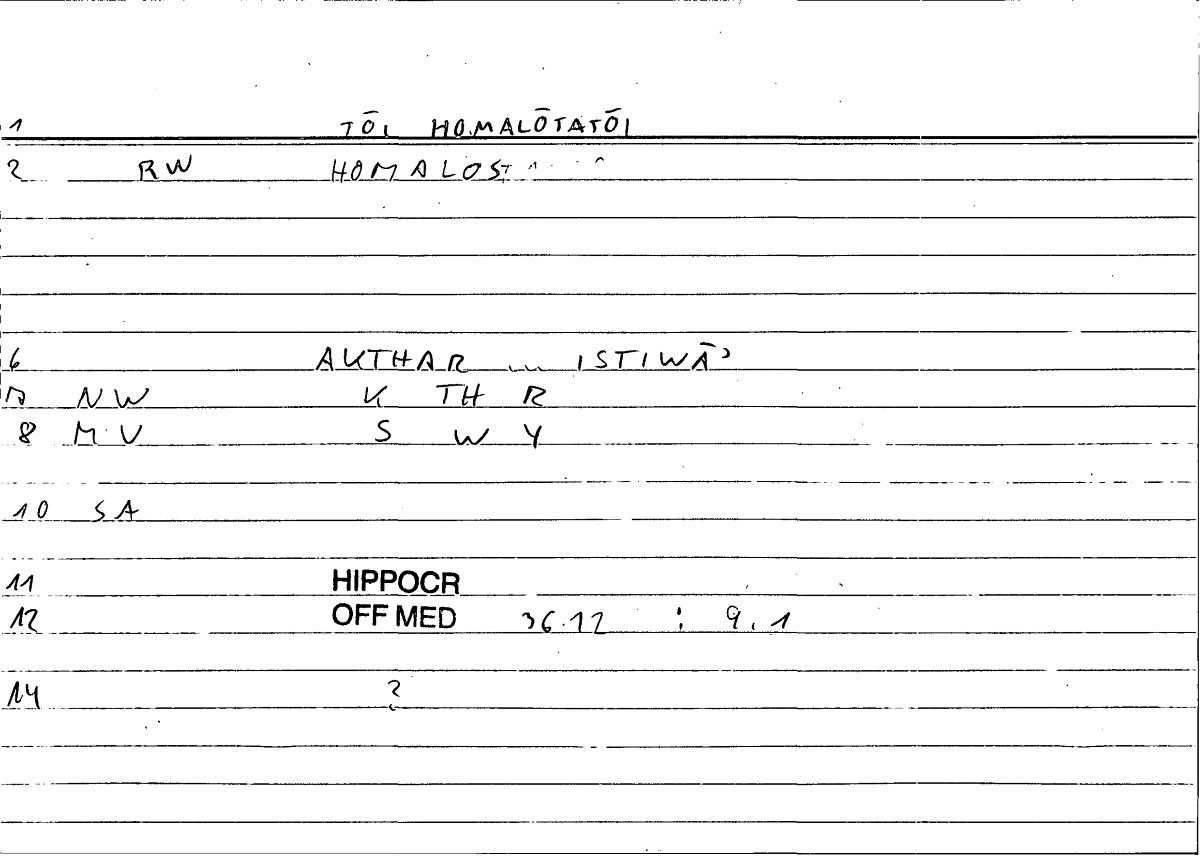 1 TŌI HOMALŌTATŌI
2 RW HOMALOS
6 AKTHAR ... ISTIWĀʾ
7 NW K TH R
8 MV S W Y
10 SA
11 HIPPOCR
12 OFF MED 36.12 : 9.1
14 ?